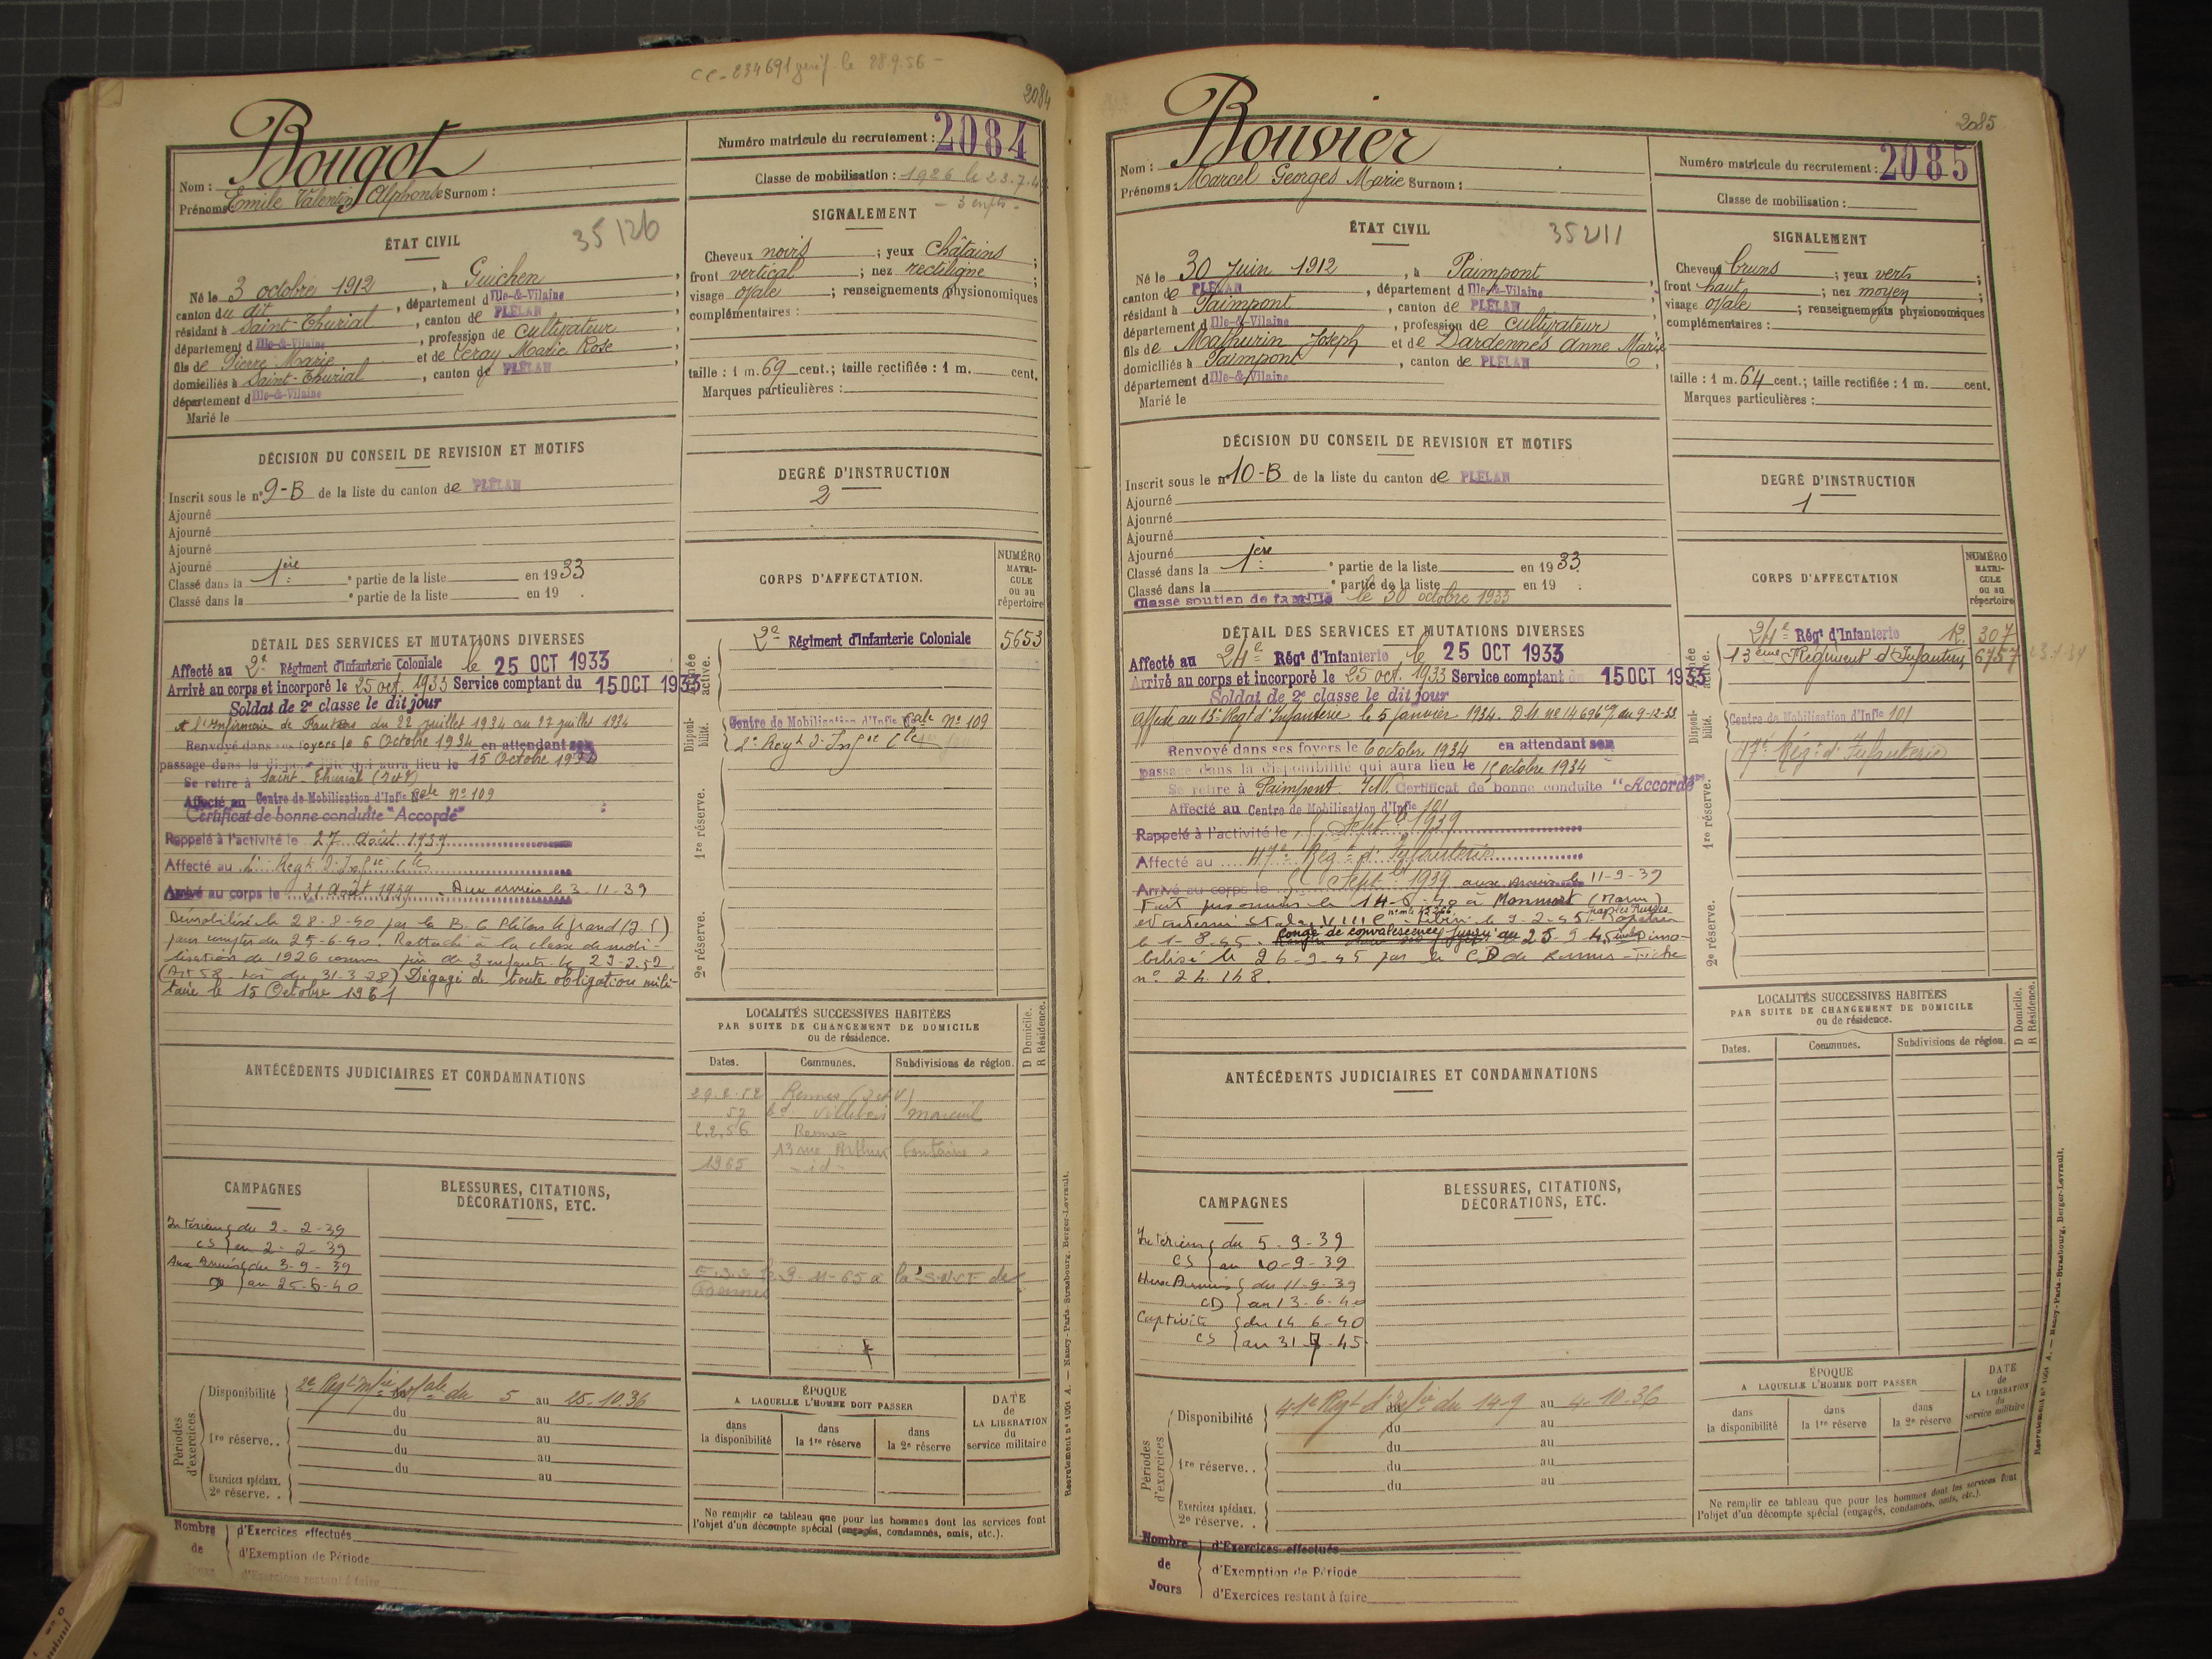 CC-234691 le 28.9.56 -
2084
Nom : Bougot
Prénoms Emile Valentin Alphonse Surnom :
Numéro matricule du recrutement : 2084
Classe de mobilisation : 1926 le 23.7.
- 3 enfts -
ÉTAT CIVIL
35126
Né le 3 octobre 1912, à Guichen,
canton du dit, département d Ille-&-Vilaine,
résidant à Saint-Thurial, canton de PLÉLAN,
département d Ille-&-Vilaine, profession de cultivateur,
fils de Pierre Marie et de Leray Marie Rose,
domiciliés à Saint-Thurial, canton de PLÉLAN,
département d Ille-&-Vilaine
Marié le
SIGNALEMENT
Cheveux noirs ; yeux châtains ;
front vertical ; nez rectiligne ;
visage ovale ; renseignements physionomiques
complémentaires :
taille : 1 m. 69 cent.; taille rectifiée : 1 m. cent.
Marques particulières :
DÉCISION DU CONSEIL DE REVISION ET MOTIFS
Inscrit sous le n° 9-B de la liste du canton de PLÉLAN
Ajourné
Ajourné
Ajourné
Ajourné
Classé dans la 1ère partie de la liste en 1933
Classé dans la ° partie de la liste en 19 .
DEGRÉ D'INSTRUCTION
2
CORPS D'AFFECTATION.
NUMÉRO
MATRI-
CULE
ou au
répertoire
DÉTAIL DES SERVICES ET MUTATIONS DIVERSES
Affecté au 2e Régiment d'Infanterie Coloniale le 25 OCT 1933
Arrivé au corps et incorporé le 25 oct. 1933 Service comptant du 15 OCT 1933
Soldat de 2e classe le dit jour
à l'Infirmerie de du 22 juillet 1934 au 27 juillet 1934
Renvoyé dans ses foyers le 6 Octobre 1934 en attendant son
passage dans la disponibilité qui aura lieu le 15 Octobre 1934
Se retire à Saint-Thurial (I et V)
Affecté au Centre de Mobilisation d'Infie Cale N° 109
Certificat de bonne conduite "Accordé"
Rappelé à l'activité le 27 Août 1939
Affecté au 2e Regt d'Infie Cle
Arrivé au corps le 31 Août 1939. Aux armées le 3-11-39
Démobilisé le 28-8-40 par le B. C. Plélan le grand (I V)
pour compter du 25-6-40. Rattaché à la classe de mobi-
lisation de 1926 comme père de 3 enfants le 29.2.52
(Art 58 - Loi du 31-3-28) Dégagé de toute obligation mili-
taire le 15 Octobre 1961
2e Régiment d'Infanterie Coloniale 5653
Centre de Mobilisation d'Infie Cale N° 109
2e Regt d'Infie Cle
Année active.
Disponibilité.
1re réserve.
2e réserve.
ANTÉCÉDENTS JUDICIAIRES ET CONDAMNATIONS
LOCALITÉS SUCCESSIVES HABITÉES
PAR SUITE DE CHANGEMENT DE DOMICILE
ou de résidence.
D Domicile.
R Résidence.
Dates. Communes. Subdivisions de région.
29.2.52 Rennes (I et V)
52 Bd Villebois mareuil
2.2.56 Rennes
13 rue Arthur Fontaine
1965 - id -
le 9-11-65 à la S.N.C.F. de
Rennes
CAMPAGNES
Intérieur du 2-2-39
CS au 2-2-39
Aux Armées du 3-9-39
CD au 25-6-40
BLESSURES, CITATIONS,
DÉCORATIONS, ETC.
Périodes d'exercices.
Disponibilité 2e Regt Infie Cale du 5 au 25.10.36
du au
1re réserve.. du au
du au
du au
Exercices spéciaux.
2e réserve. .
ÉPOQUE
A LAQUELLE L'HOMME DOIT PASSER
dans
la disponibilité
dans
la 1re réserve
dans
la 2e réserve
DATE
de
LA LIBÉRATION
du
service militaire
Ne remplir ce tableau que pour les hommes dont les services font
l'objet d'un décompte spécial (engagés, condamnés, omis, etc.).
Nombre
de
Jours
d'Exercices effectués
d'Exemption de Période
d'Exercices restant à faire
Recrutement n° 1051 A. — Nancy-Paris-Strasbourg, Berger-Levrault.
2085
Nom : Bouvier
Prénoms : Marcel Georges Marie Surnom :
Numéro matricule du recrutement : 2085
Classe de mobilisation :
ÉTAT CIVIL
35211
Né le 30 Juin 1912, à Paimpont,
canton de PLÉLAN, département d Ille-&-Vilaine,
résidant à Paimpont, canton de PLÉLAN,
département d Ille-&-Vilaine, profession de cultivateur
fils de Mathurin Joseph et de Dardennes Anne Marie
domiciliés à Paimpont, canton de PLÉLAN,
département d Ille-&-Vilaine
Marié le
SIGNALEMENT
Cheveux bruns ; yeux verts ;
front haut ; nez moyen ;
visage ovale ; renseignements physionomiques
complémentaires :
taille : 1 m. 64 cent.; taille rectifiée : 1 m. cent.
Marques particulières :
DÉCISION DU CONSEIL DE REVISION ET MOTIFS
Inscrit sous le n° 10-B de la liste du canton de PLÉLAN
Ajourné
Ajourné
Ajourné
Ajourné
Classé dans la 1ère partie de la liste en 1933
Classé dans la ° partie de la liste en 19 .
Classé soutien de famille le 30 octobre 1933
DEGRÉ D'INSTRUCTION
1
CORPS D'AFFECTATION
NUMÉRO
MATRI-
CULE
ou au
répertoire
DÉTAIL DES SERVICES ET MUTATIONS DIVERSES
Affecté au 24e Régt d'Infanterie le 25 OCT 1933
Arrivé au corps et incorporé le 25 oct. 1933 Service comptant du 15 OCT 1933
Soldat de 2e classe le dit jour
Affecté au 13e Regt d'Infanterie le 5 janvier 1934. D.M. ne 14696 du 9-12-33
Renvoyé dans ses foyers le 6 octobre 1934 en attendant son
passage dans la disponibilité qui aura lieu le 15 octobre 1934
Se retire à Paimpont I et V. Certificat de bonne conduite "Accordé"
Affecté au Centre de Mobilisation d'Infie 101
Rappelé à l'activité le 5 Septbre 1939
Affecté au 47e Régt d'Infanterie
Arrivé au corps le 5 Sept. 1939 aux Armées le 11-9-39
Fait prisonnier le 14-6-40 à Monmort (Marne)
et interné Stalag VIII C - Libéré le 9-2-45 par les Russes. Rapatrié
le 1-8-45. Congé de convalescence jusqu'au 25-9-45 inclus Démo-
bilisé le 26-9-45 par le CD de Rennes - Fiche
n° 24.148.
24e Régt d'Infanterie R. 307
13ème Régiment d'Infanterie 6757
Centre de Mobilisation d'Infie 101
47e Régt d'Infanterie
Année active.
Disponibilité.
1re réserve.
2e réserve.
ANTÉCÉDENTS JUDICIAIRES ET CONDAMNATIONS
LOCALITÉS SUCCESSIVES HABITÉES
PAR SUITE DE CHANGEMENT DE DOMICILE
ou de résidence.
D Domicile.
R Résidence.
Dates. Communes. Subdivisions de région.
CAMPAGNES
Intérieur du 5-9-39
CS au 10-9-39
Aux Armées du 11-9-39
CD au 13-6-40
Captivité du 14-6-40
CS au 31-7-45
BLESSURES, CITATIONS,
DÉCORATIONS, ETC.
Périodes d'exercices
Disponibilité 41e Regt d'Infie du 14-9 au 4-10-36
du au
du au
1re réserve. . du au
du au
Exercices spéciaux.
2e réserve. .
ÉPOQUE
A LAQUELLE L'HOMME DOIT PASSER
dans
la disponibilité
dans
la 1re réserve
dans
la 2e réserve
DATE
de
LA LIBÉRATION
du
service militaire
Ne remplir ce tableau que pour les hommes dont les services font
l'objet d'un décompte spécial (engagés, condamnés, omis, etc.).
Nombre
de
Jours
d'Exercices effectués
d'Exemption de Période
d'Exercices restant à faire
Recrutement n° 1051 A. — Nancy-Paris-Strasbourg, Berger-Levrault.